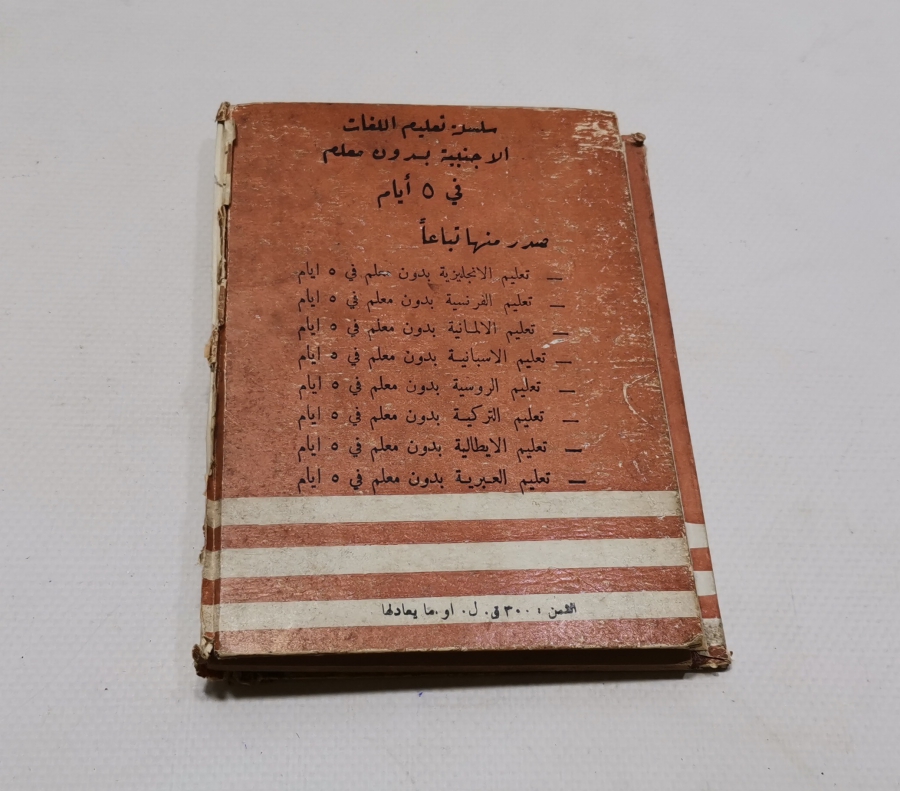 سلسلة تعليم اللغات
الاجنبية بدون معلم
في ٥ أيام
صدر منها تباعاً
— تعليم الانجليزية بدون معلم في ٥ ايام
— تعليم الفرنسية بدون معلم في ٥ ايام
— تعليم الالمانية بدون معلم في ٥ ايام
— تعليم الاسبانية بدون معلم في ٥ ايام
— تعليم الروسية بدون معلم في ٥ ايام
— تعليم التركية بدون معلم في ٥ ايام
— تعليم الايطالية بدون معلم في ٥ ايام
— تعليم العبرية بدون معلم في ٥ ايام
الثمن : ٣٠٠ ق. ل. او ما يعادلها